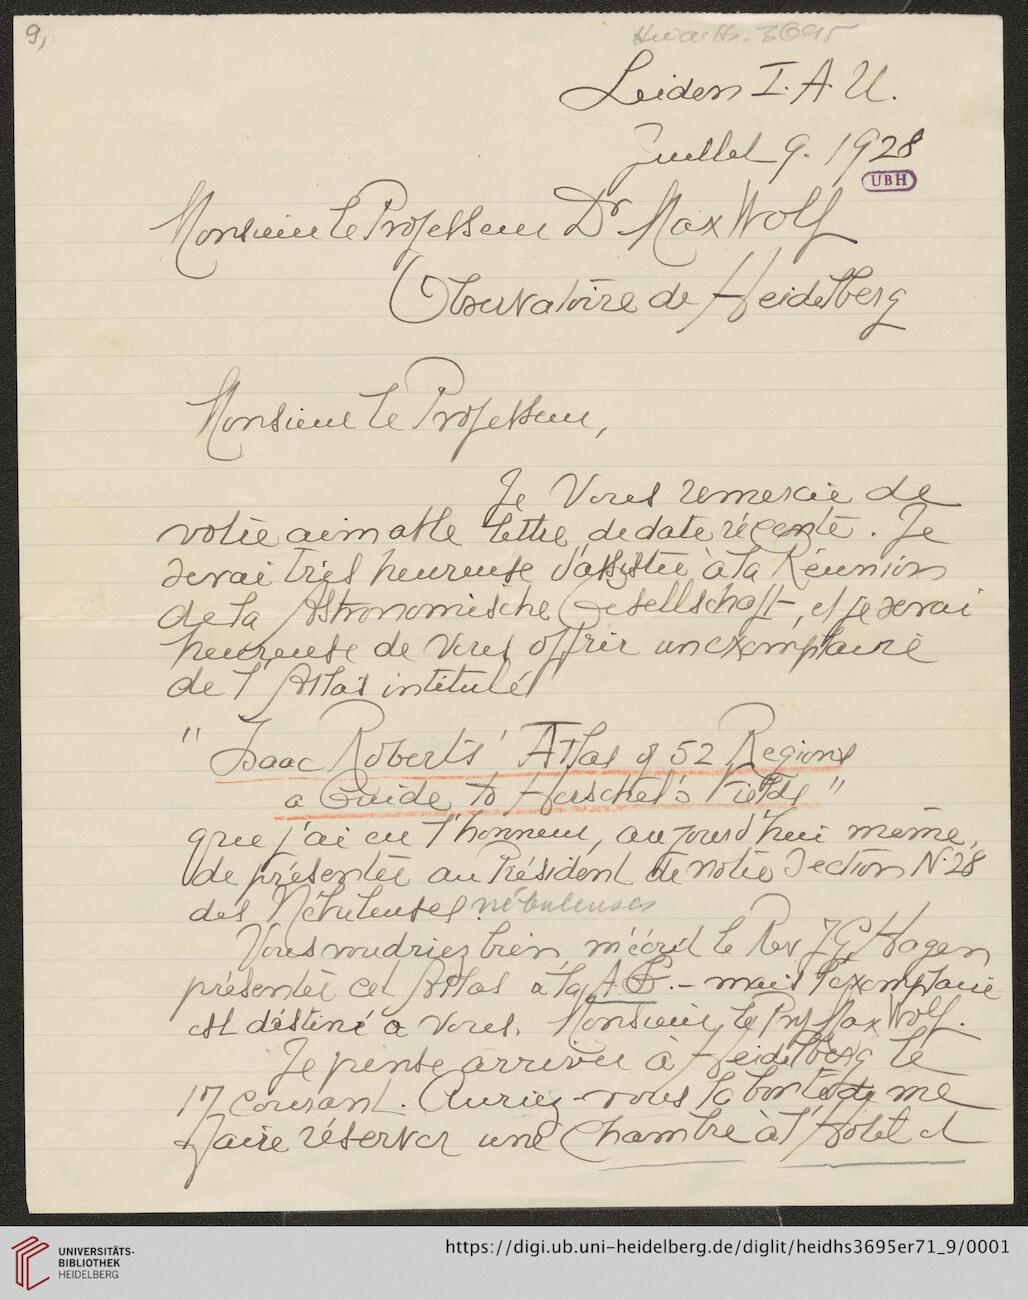 9,
Heid. Hs. 3695
Leiden I. A. U.
Juillet 9. 1928
UBH
Monsieur le Professeur Dr Max Wolf
Observatoire de Heidelberg
Monsieur le Professeur,
Je Vous remercie de
votre aimable lettre de date récente. Je
serai très heureuse d'assister à la Réunion
de la Astronomische Gesellschaft, et je serai
heureuse de Vous offrir un exemplaire
de l'Atlas intitulé
" Isaac Roberts' Atlas of 52 Regions
a Guide to Herschel's Fields "
que j'ai eu l'honneur, aujourd'hui même,
de présenter au Président de notre Section N. 28
des Nébuleuses. nébuleuses
Vous voudriez bien, m'écrit le Rev J G Hagen
présenter cet Atlas à la A.G. - mais l'exemplaire
est déstiné a Vous, Monsieur le Prof Max Wolf.
Je pense arriver à Heidelberg le
17 courant. Auriez-vous la bonté de me
faire réserver une chambre à l'Hotel d
UNIVERSITÄTS-
BIBLIOTHEK
HEIDELBERG
https://digi.ub.uni-heidelberg.de/diglit/heidhs3695er71_9/0001